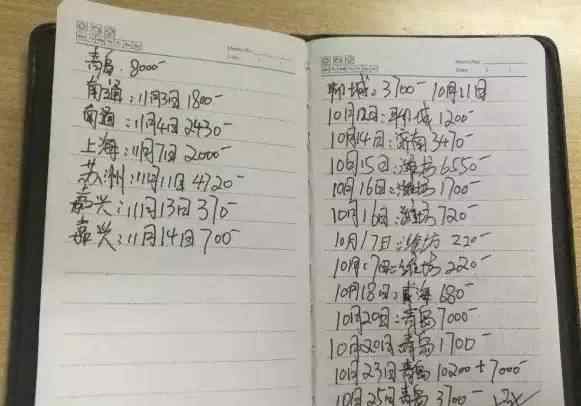 青岛: 8000-
南通: 11月3日 1800-
南通: 11月4日 2430-
上海: 11月7日 2000-
苏州: 11月11日 4720-
嘉兴: 11月13日 370-
嘉兴: 11月14日 700-
聊城: 3700- 10月11日
10月12日: 聊城 1200-
10月14日: 济南 3470-
10月15日: 潍坊 6550-
10月16日: 潍坊 1700-
10月16日: 潍坊 720-
10月17日: 潍坊 220-
10月17日: 潍坊 2220-
10月18日: 威海 680-
10月20日: 青岛 7000-
10月20日 青岛 1700-
10月23日 青岛 10200+7000-
10月25日 青岛 3700-